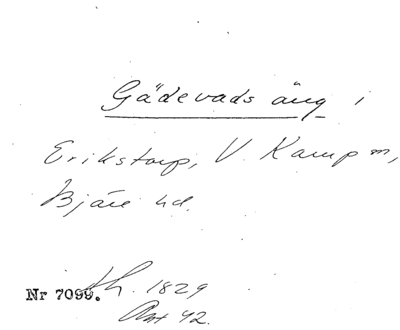 Gädevads äng i
Erikstorp, V. Karup sn,
Bjäre hd.
Nr 7099. th. 1829
Akt 42.